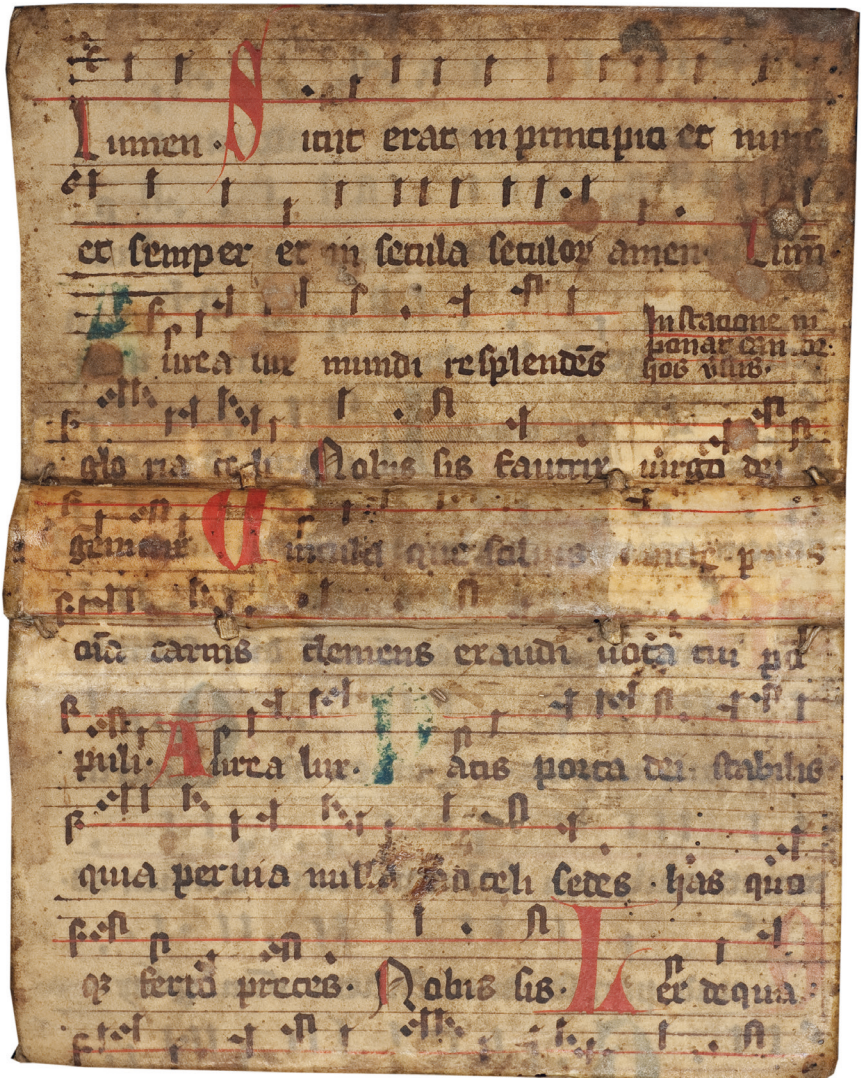 Lumen. Sicut erat in principio et nunc
et semper et in secula seculor amen. Lum̄
Aurea lux mundi resplendēs
In statione in
ponat
hos vsus.
gloria celi Nobis sis fautrix uirgo dei
genitrix Uincula que
oīa carnis clemens exaudi uota tui po
puli. Aurea lux. Patis porta dei stabilis
quia peruia nulla ad celi sedes. has quo
qꝫ ferto preces. Nobis sis. Lex de qua